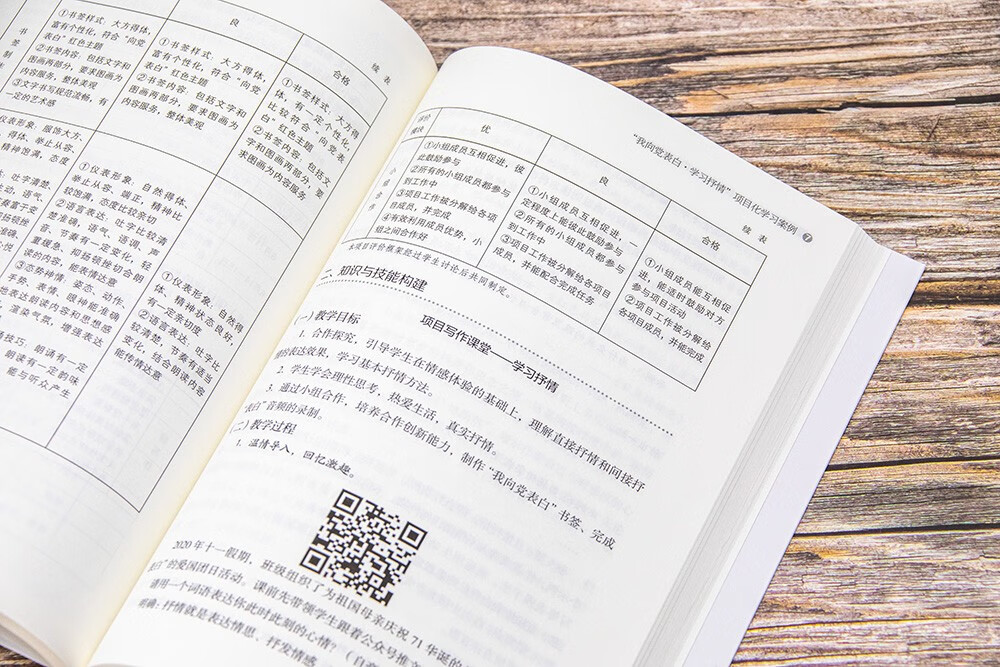 续 表
良
合格
①书签样式：大方得体，
富有个性化，符合“向党
表白”红色主题
②书签内容：包括文字和
图画两部分，要求图画为
内容服务，整体美观
③文字书写规范流畅，有
一定的艺术感
①书签样式：大方得体，
富有个性化，符合“向党
表白”红色主题
②书签内容：包括文字和
图画两部分，要求图画为
内容服务，整体美观
①书签样式：大方得
体，有一定个性化，
比较符合“向党表
白”红色主题
②书签内容：包括文
字和图画两部分，要
求图画为内容服务
仪表形象：服饰大方、
得体，举止从容、
精神饱满，态度
①仪表形象：自然得体，
举止从容、端正，精神比
较饱满，态度比较亲切
②语言表达：吐字比较清
楚准确，语气、语调、声
音、节奏有一定变化，轻
重缓急、抑扬顿挫切合朗
读的内容，能表情达意
③态势神情：姿态、动作、
手势、表情、眼神能准确
地表达朗读内容和思想感
渲染气氛，增强表达
技巧：朗诵有一定
朗读有一定的韵味
能与听众产生
①仪表形象：自然得
体，精神状态良好，
有一定亲切度
②语言表达：吐字比
较清楚，节奏有适当
变化，结合朗读内容
能传情达意
“我向党表白·学习抒情”项目化学习案例 7
续 表
评价
模块
优
良
合格
小
组
合
作
①小组成员互相促进，彼
此鼓励参与
②所有的小组成员都参与
到工作中
③项目工作被分解给各项
目成员，并完成
④有效利用成员优势，小
组之间合作好
①小组成员互相促进，一
定程度上能彼此鼓励参与
②所有的小组成员都参与
到工作中
③项目工作被分解给各项目
成员，并能配合完成任务
①小组成员能互相促
进，能适时鼓励对方
参与项目活动
②项目工作被分解给
各项目成员，并能完成
本项目评价框架经过学生讨论后共同制定。
二、知识与技能构建
项目写作课堂——学习抒情
（一）教学目标
1. 合作探究，引导学生在情感体验的基础上，理解直接抒情和间接抒
情的表达效果，学习基本抒情方法。
2. 学生学会理性思考，热爱生活，真实抒情。
3. 通过小组合作，培养合作创新能力，制作“我向党表白”书签、完成
“表白”音频的录制。
（二）教学过程
1. 温情导入，回忆激趣。
2020 年十一假期，班级组织了为祖国母亲庆祝 71 华诞的
表白”的爱国团日活动。课前先带领学生跟着公众号推文
请用一个词语表达你此时此刻的心情？（自
明确：抒情就是表达情思、抒发情感